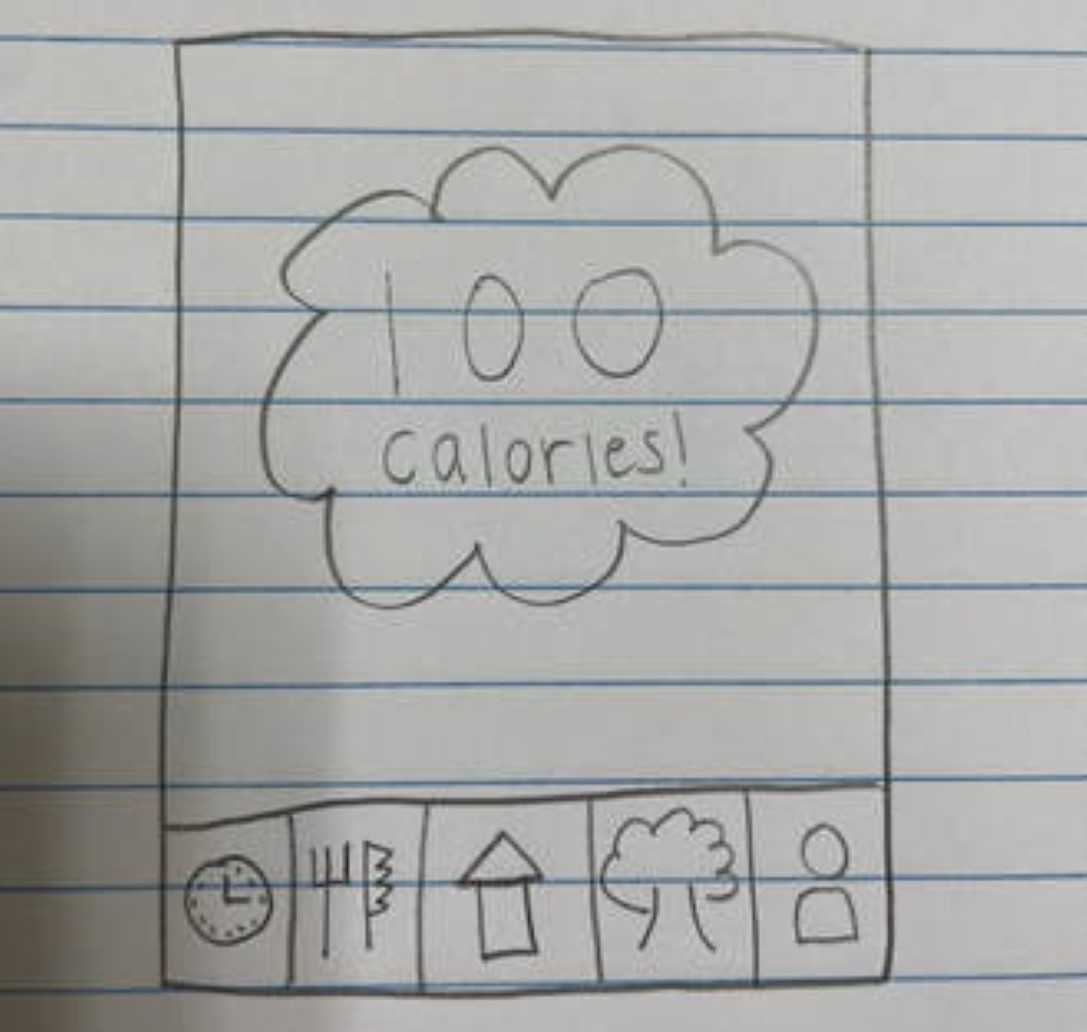 100
calories!